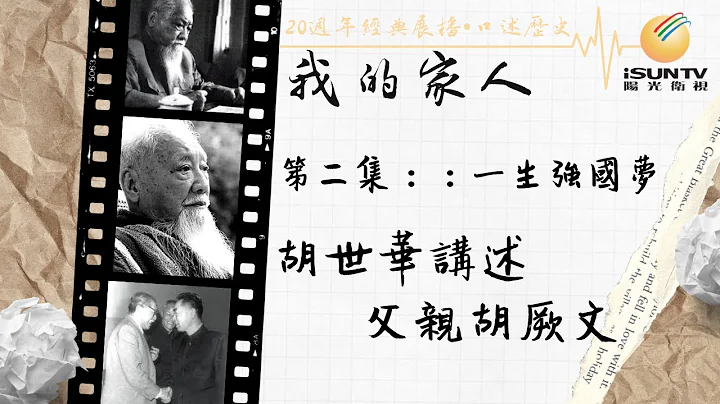 20週年經典展播•口述歷史
iSUNTV
陽光衛視
我的家人
第二集：：一生強國夢
胡世華講述
父親胡厥文
TX 5063
10
9A
9
8A
the Great Dismal
and fell in love with it.
holiday